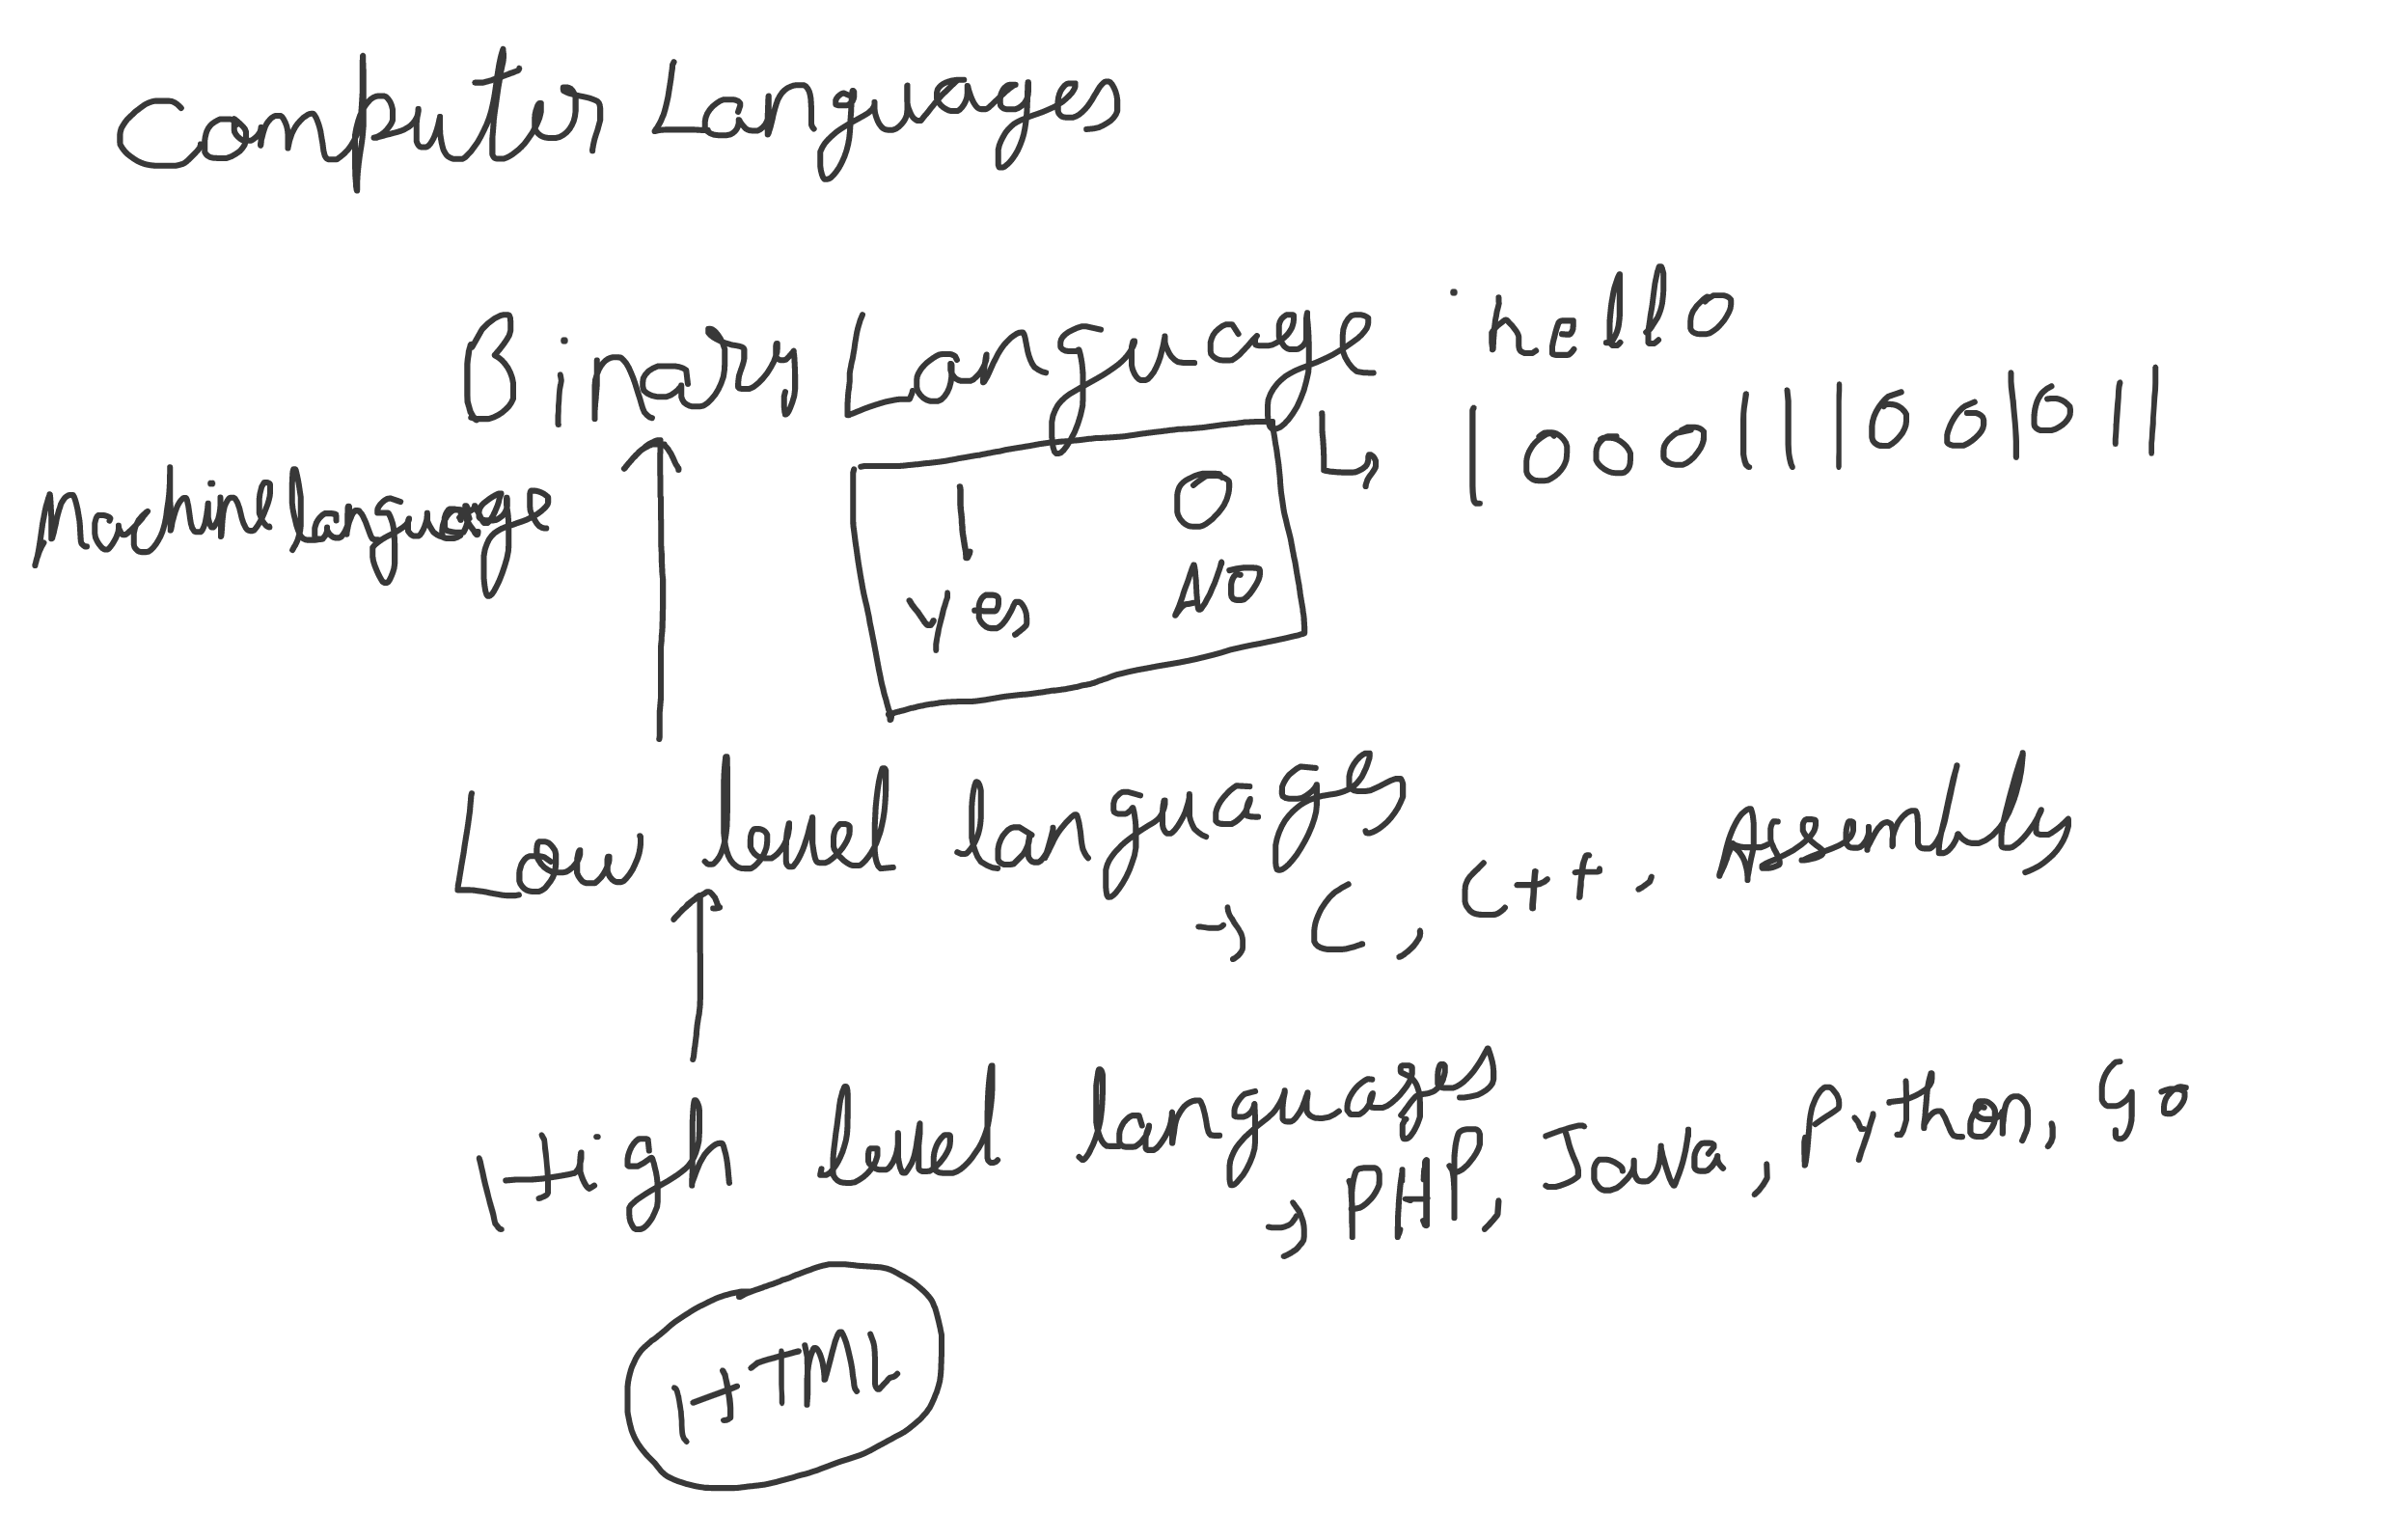 Computer Languages
Binary Language
hello
Machine language
1 0
Yes No
1000111001011
Low level languages
→ C, C++, Assembly
High level languages
→ PHP, Java, Python, Go
HTML